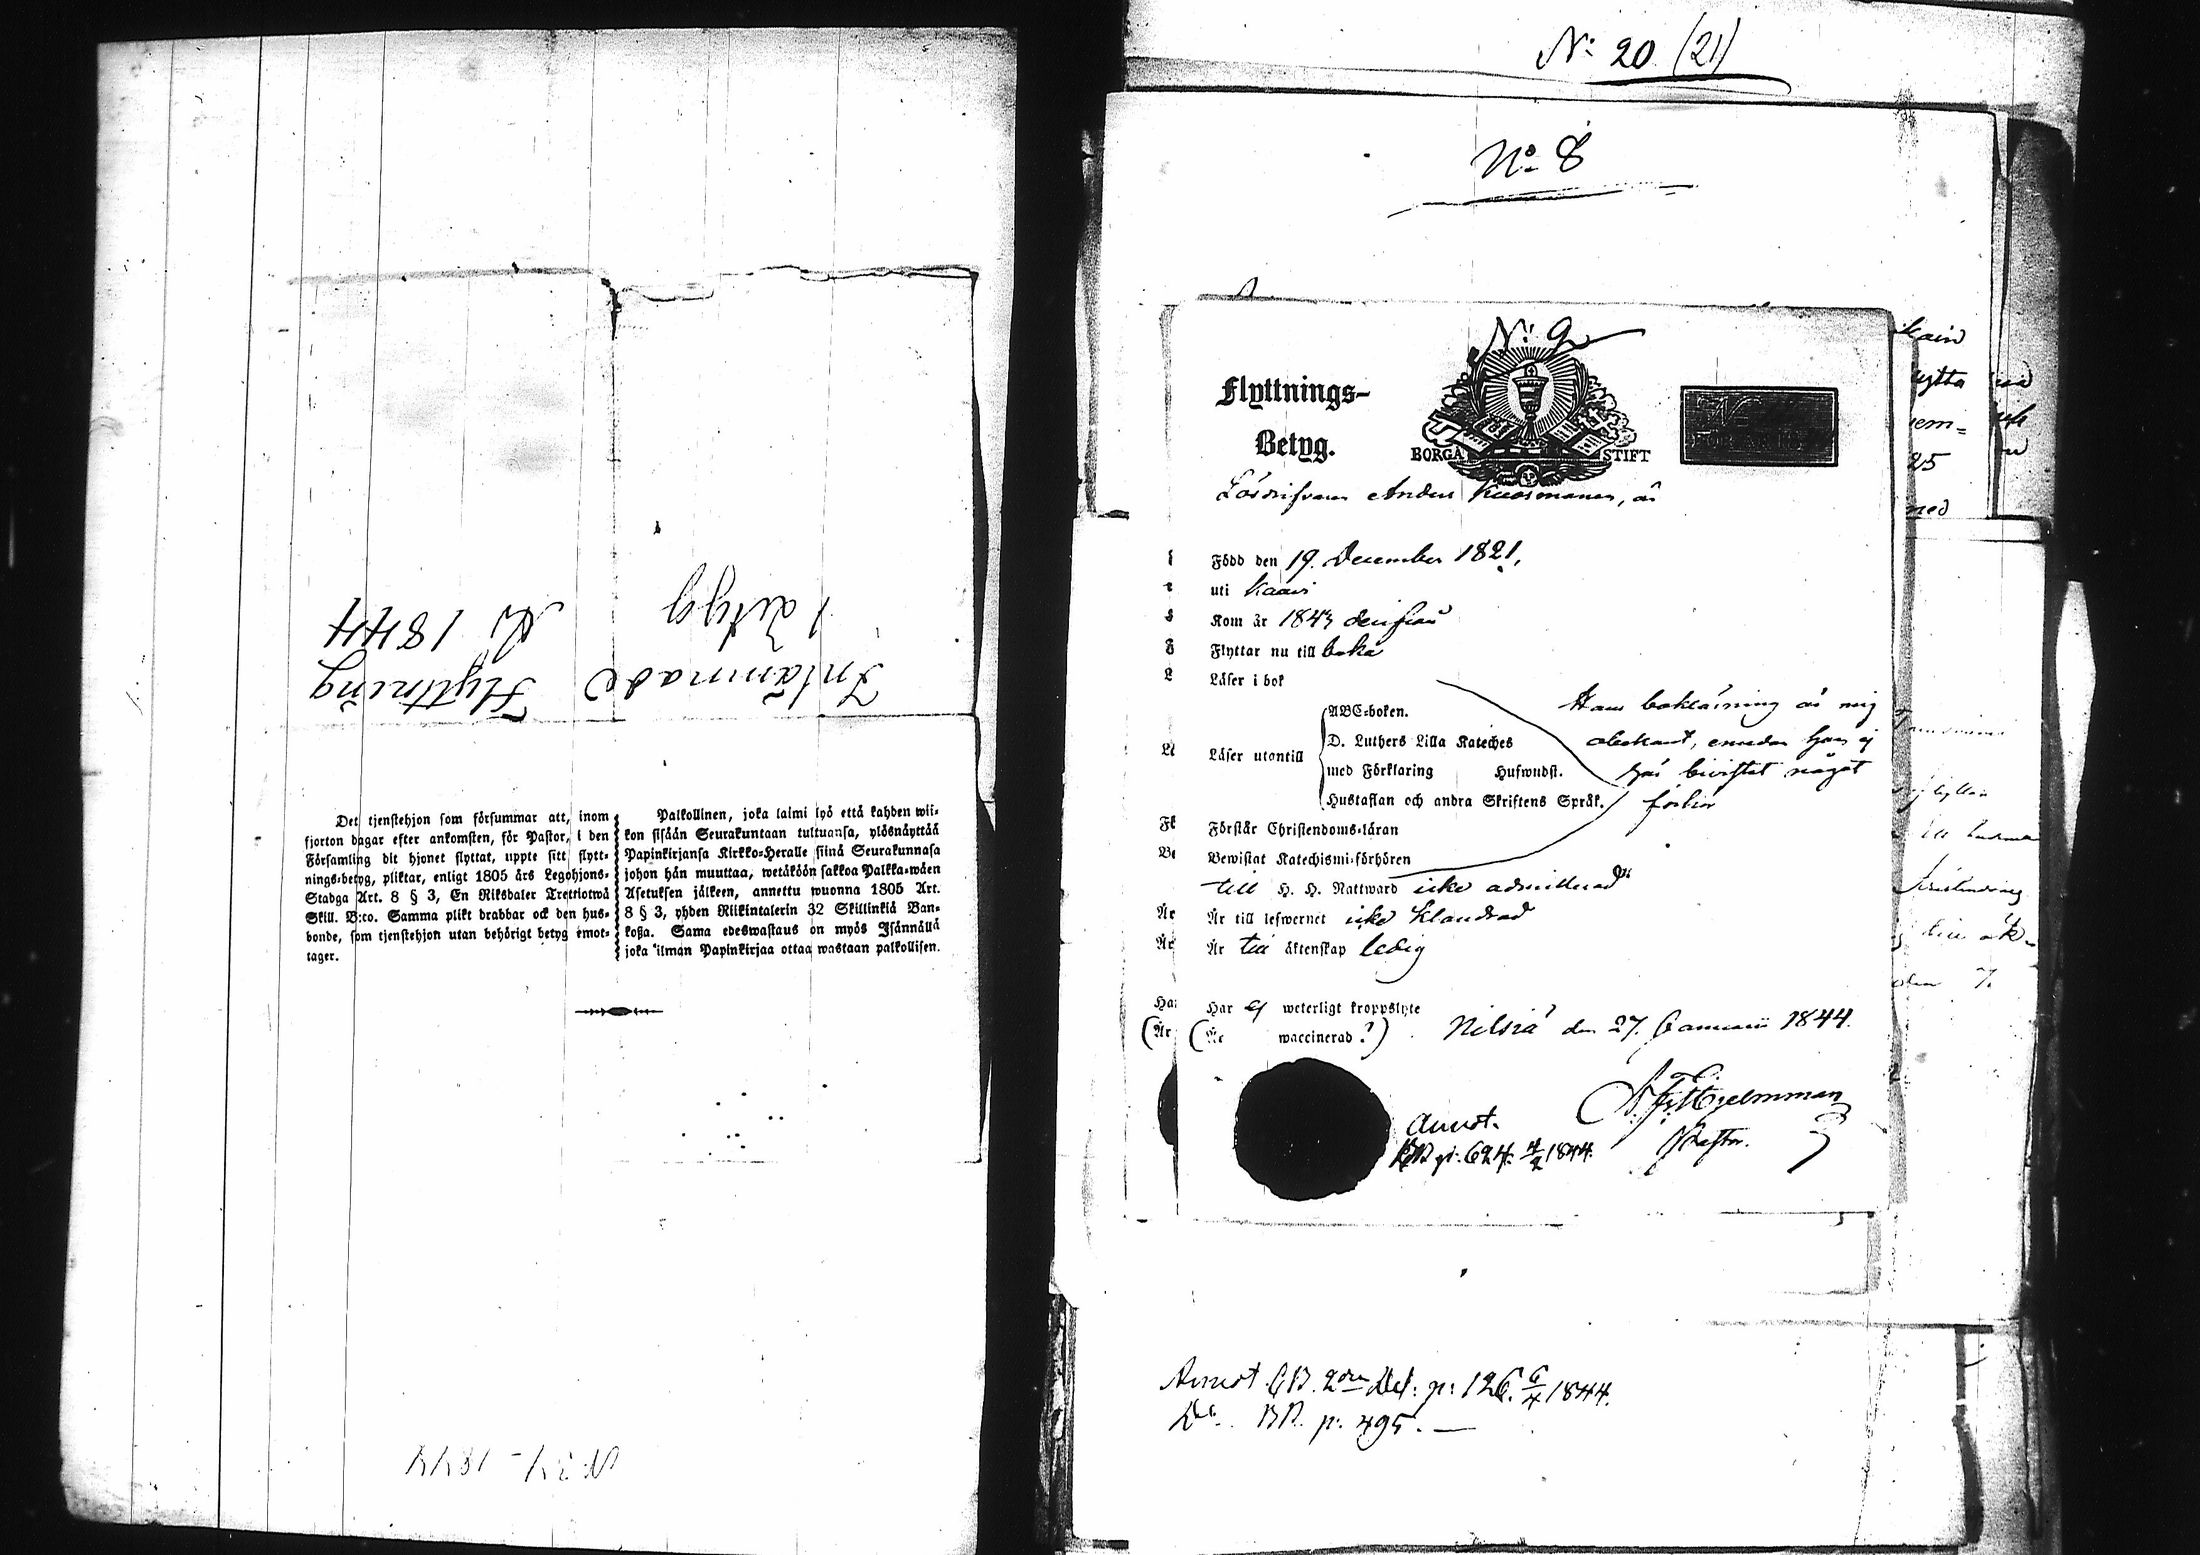 Inlämnade Flyttning
betyg År 1844
Det tjenstehjon som försummar att, inom
fjorton dagar efter ankomsten, för Pastor, i den
Församling dit hjonet flyttat, uppte sitt flytt-
nings-betyg, pliktar, enligt 1805 års Legohjons-
Stadga Art. 8 § 3, En Riksdaler Trettiotwå
Skill. B:co. Samma plikt drabbar ock den hus-
bonde, som tjenstehjon utan behörigt betyg emot-
tager.
Palkollinen, joka laimi lyö että kahden wii-
kon sisään Seurakuntaan tultuansa, ylösnäyttää
Papinkirjansa Kirkko-Heralle siinä Seurakunnasa
johon hän muuttaa, wetäköön sakkoa Palkka-wäen
Asetuksen jälkeen, annettu wuonna 1805 Art.
8 § 3, yhden Riikintalerin 32 Skillinkiä Ban-
koßa. Sama edeswastaus on myös Isännällä
joka ilman Papinkirjaa ottaa wastaan palkollisen.
N:o 20 (21)
N:o 8
N:o 9
Flyttnings-
Betyg.
BORGÅ STIFT
Lösdrifvaren Anders Kuosmanen, är
Född den 19. December 1821,
uti Kaavi
Kom år 1843 derifrån
Flyttar nu till
Läser i bok
Hans bokläsning är mig
obekant, emedan han ej
har bivistat något
förhör
Läser utantill
ABC-boken.
D. Luthers Lilla Kateches
med Förklaring Hufwudst.
Hustaflan och andra Skriftens Språk.
Förstår Christendoms-läran
Bewistat Katechismi-förhören
till H. H. Nattward icke admitterad
Är till lefwernet icke klandrad
Är till äktenskap ledig
Har ej weterligt kroppslyte
(Är waccinerad?)
Nilsiä den 27. Januarii 1844.
Pastor.
Annot.
p: 624. 4/2 1844.
Annot. CB. 2dra Del: p: 126. 6/4 1844.
Do. BB. p: 495. —